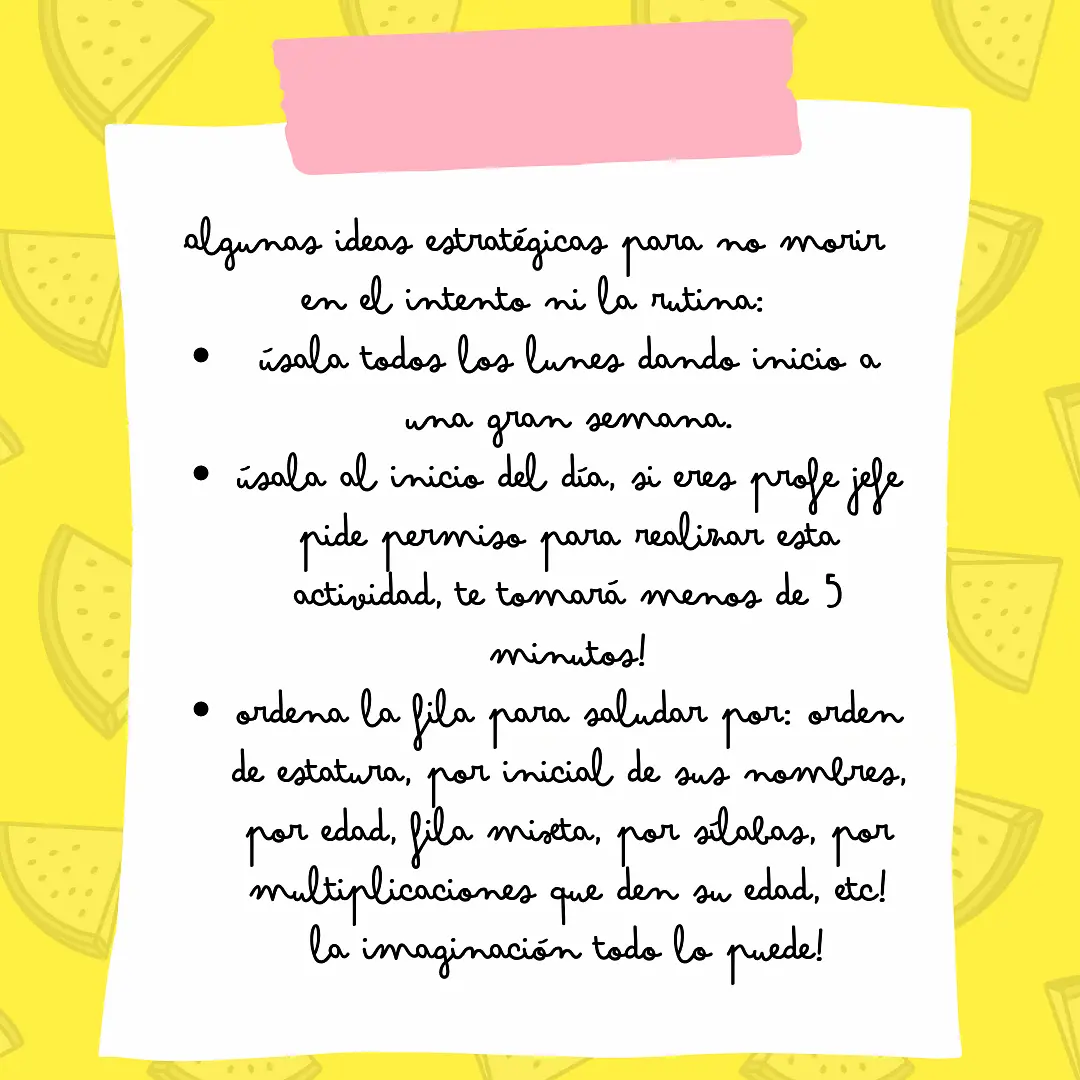 algunas ideas estratégicas para no morir
en el intento ni la rutina:
• úsala todos los lunes dando inicio a
una gran semana.
• úsala al inicio del día, si eres profe jefe
pide permiso para realizar esta
actividad, te tomará menos de 5
minutos!
• ordena la fila para saludar por: orden
de estatura, por inicial de sus nombres,
por edad, fila mixta, por sílabas, por
multiplicaciones que den su edad, etc!
la imaginación todo lo puede!